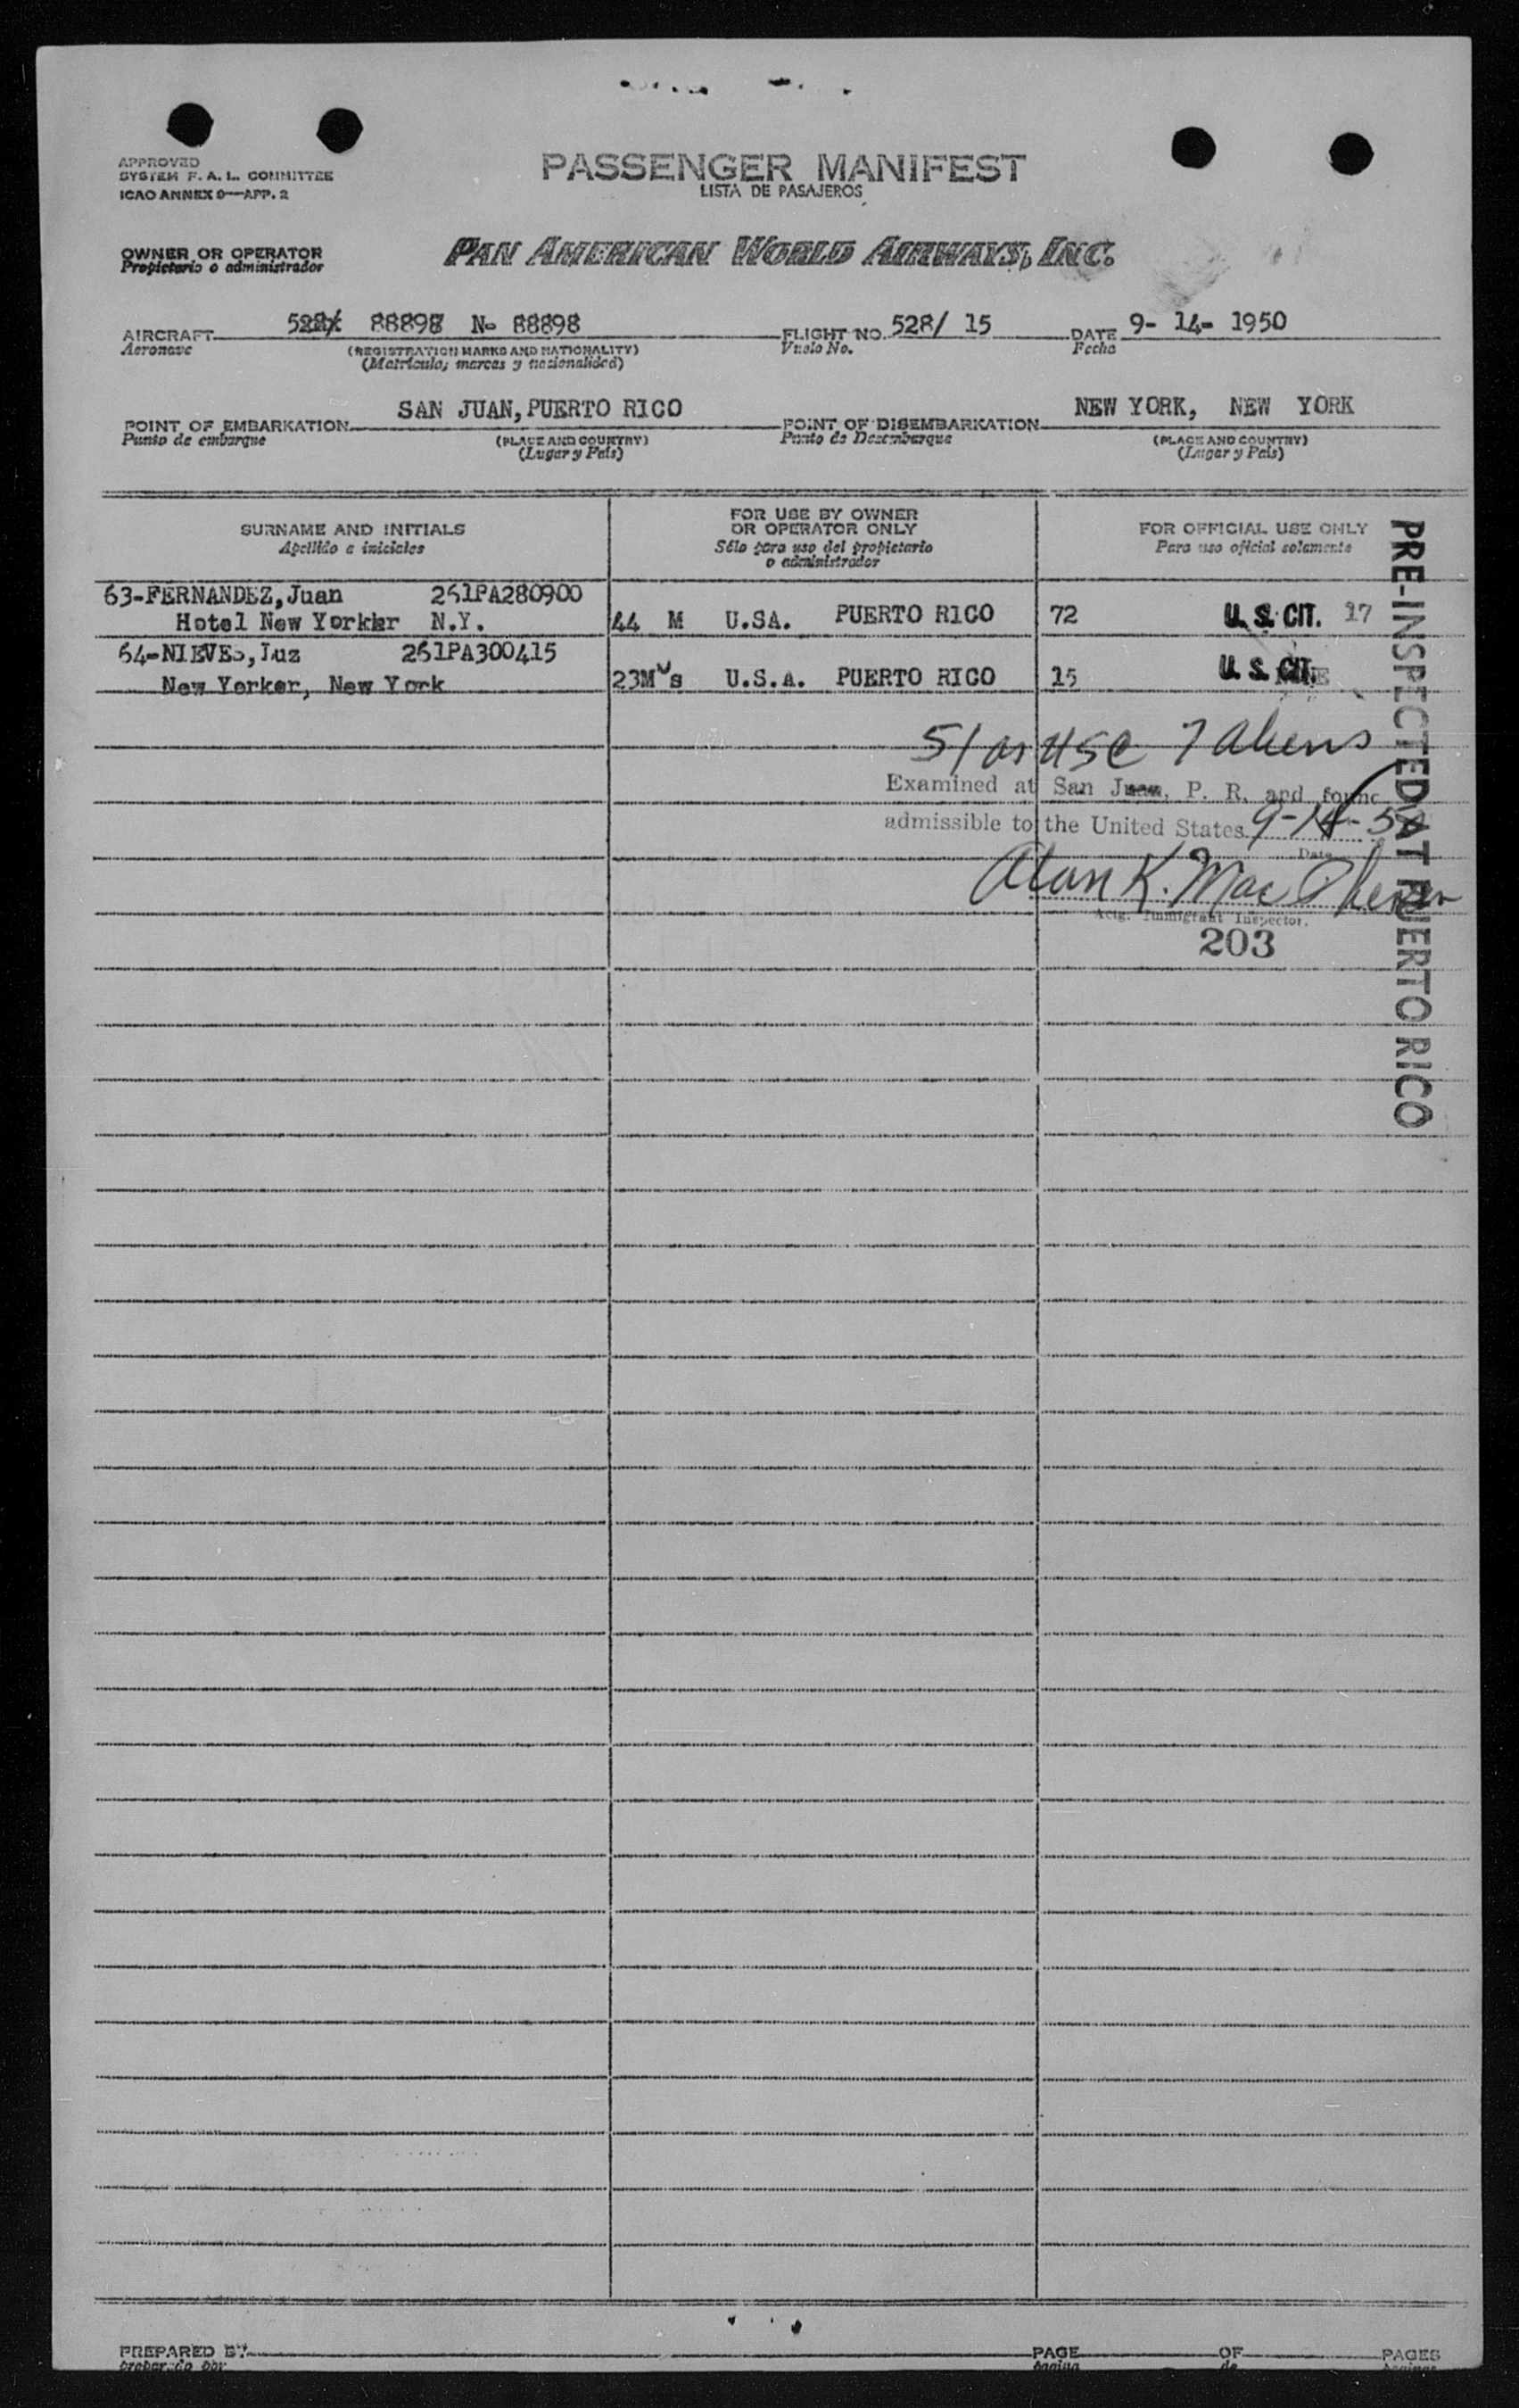 APPROVED
SYSTEM F. A. L. COMMITTEE
ICAO ANNEX 9—APP. 2
PASSENGER MANIFEST
LISTA DE PASAJEROS
OWNER OR OPERATOR
Propietario o administrador
PAN AMERICAN WORLD AIRWAYS, INC.
AIRCRAFT 528/ 88898 No 88898
Aeronave
(REGISTRATION MARKS AND NATIONALITY)
(Matrícula, marcas y nacionalidad)
FLIGHT NO. 528/ 15
Vuelo No.
DATE 9- 14- 1950
Fecha
POINT OF EMBARKATION SAN JUAN, PUERTO RICO
Punto de embarque
(PLACE AND COUNTRY)
(Lugar y País)
POINT OF DISEMBARKATION NEW YORK, NEW YORK
Punto de Desembarque
(PLACE AND COUNTRY)
(Lugar y País)
SURNAME AND INITIALS
Apellido e iniciales
FOR USE BY OWNER
OR OPERATOR ONLY
Sólo para uso del propietario
o administrador
FOR OFFICIAL USE ONLY
Para uso oficial solamente
63-FERNANDEZ, Juan 261PA280900
Hotel New Yorker N.Y. 44 M U.SA. PUERTO RICO 72 U. S. CIT. 17
64-NIEVES, Luz 261PA300415
New Yorker, New York 23M s U.S.A. PUERTO RICO 15 U. S. CIT.
51 USC 7 Aliens
Examined at San Juan, P. R. and found
admissible to the United States 9-14-50
Date
Alan K.
Actg. Immigrant Inspector.
203
PRE-INSPECTED AT PUERTO RICO
PREPARED BY
preparado por
PAGE OF PAGES
página de páginas